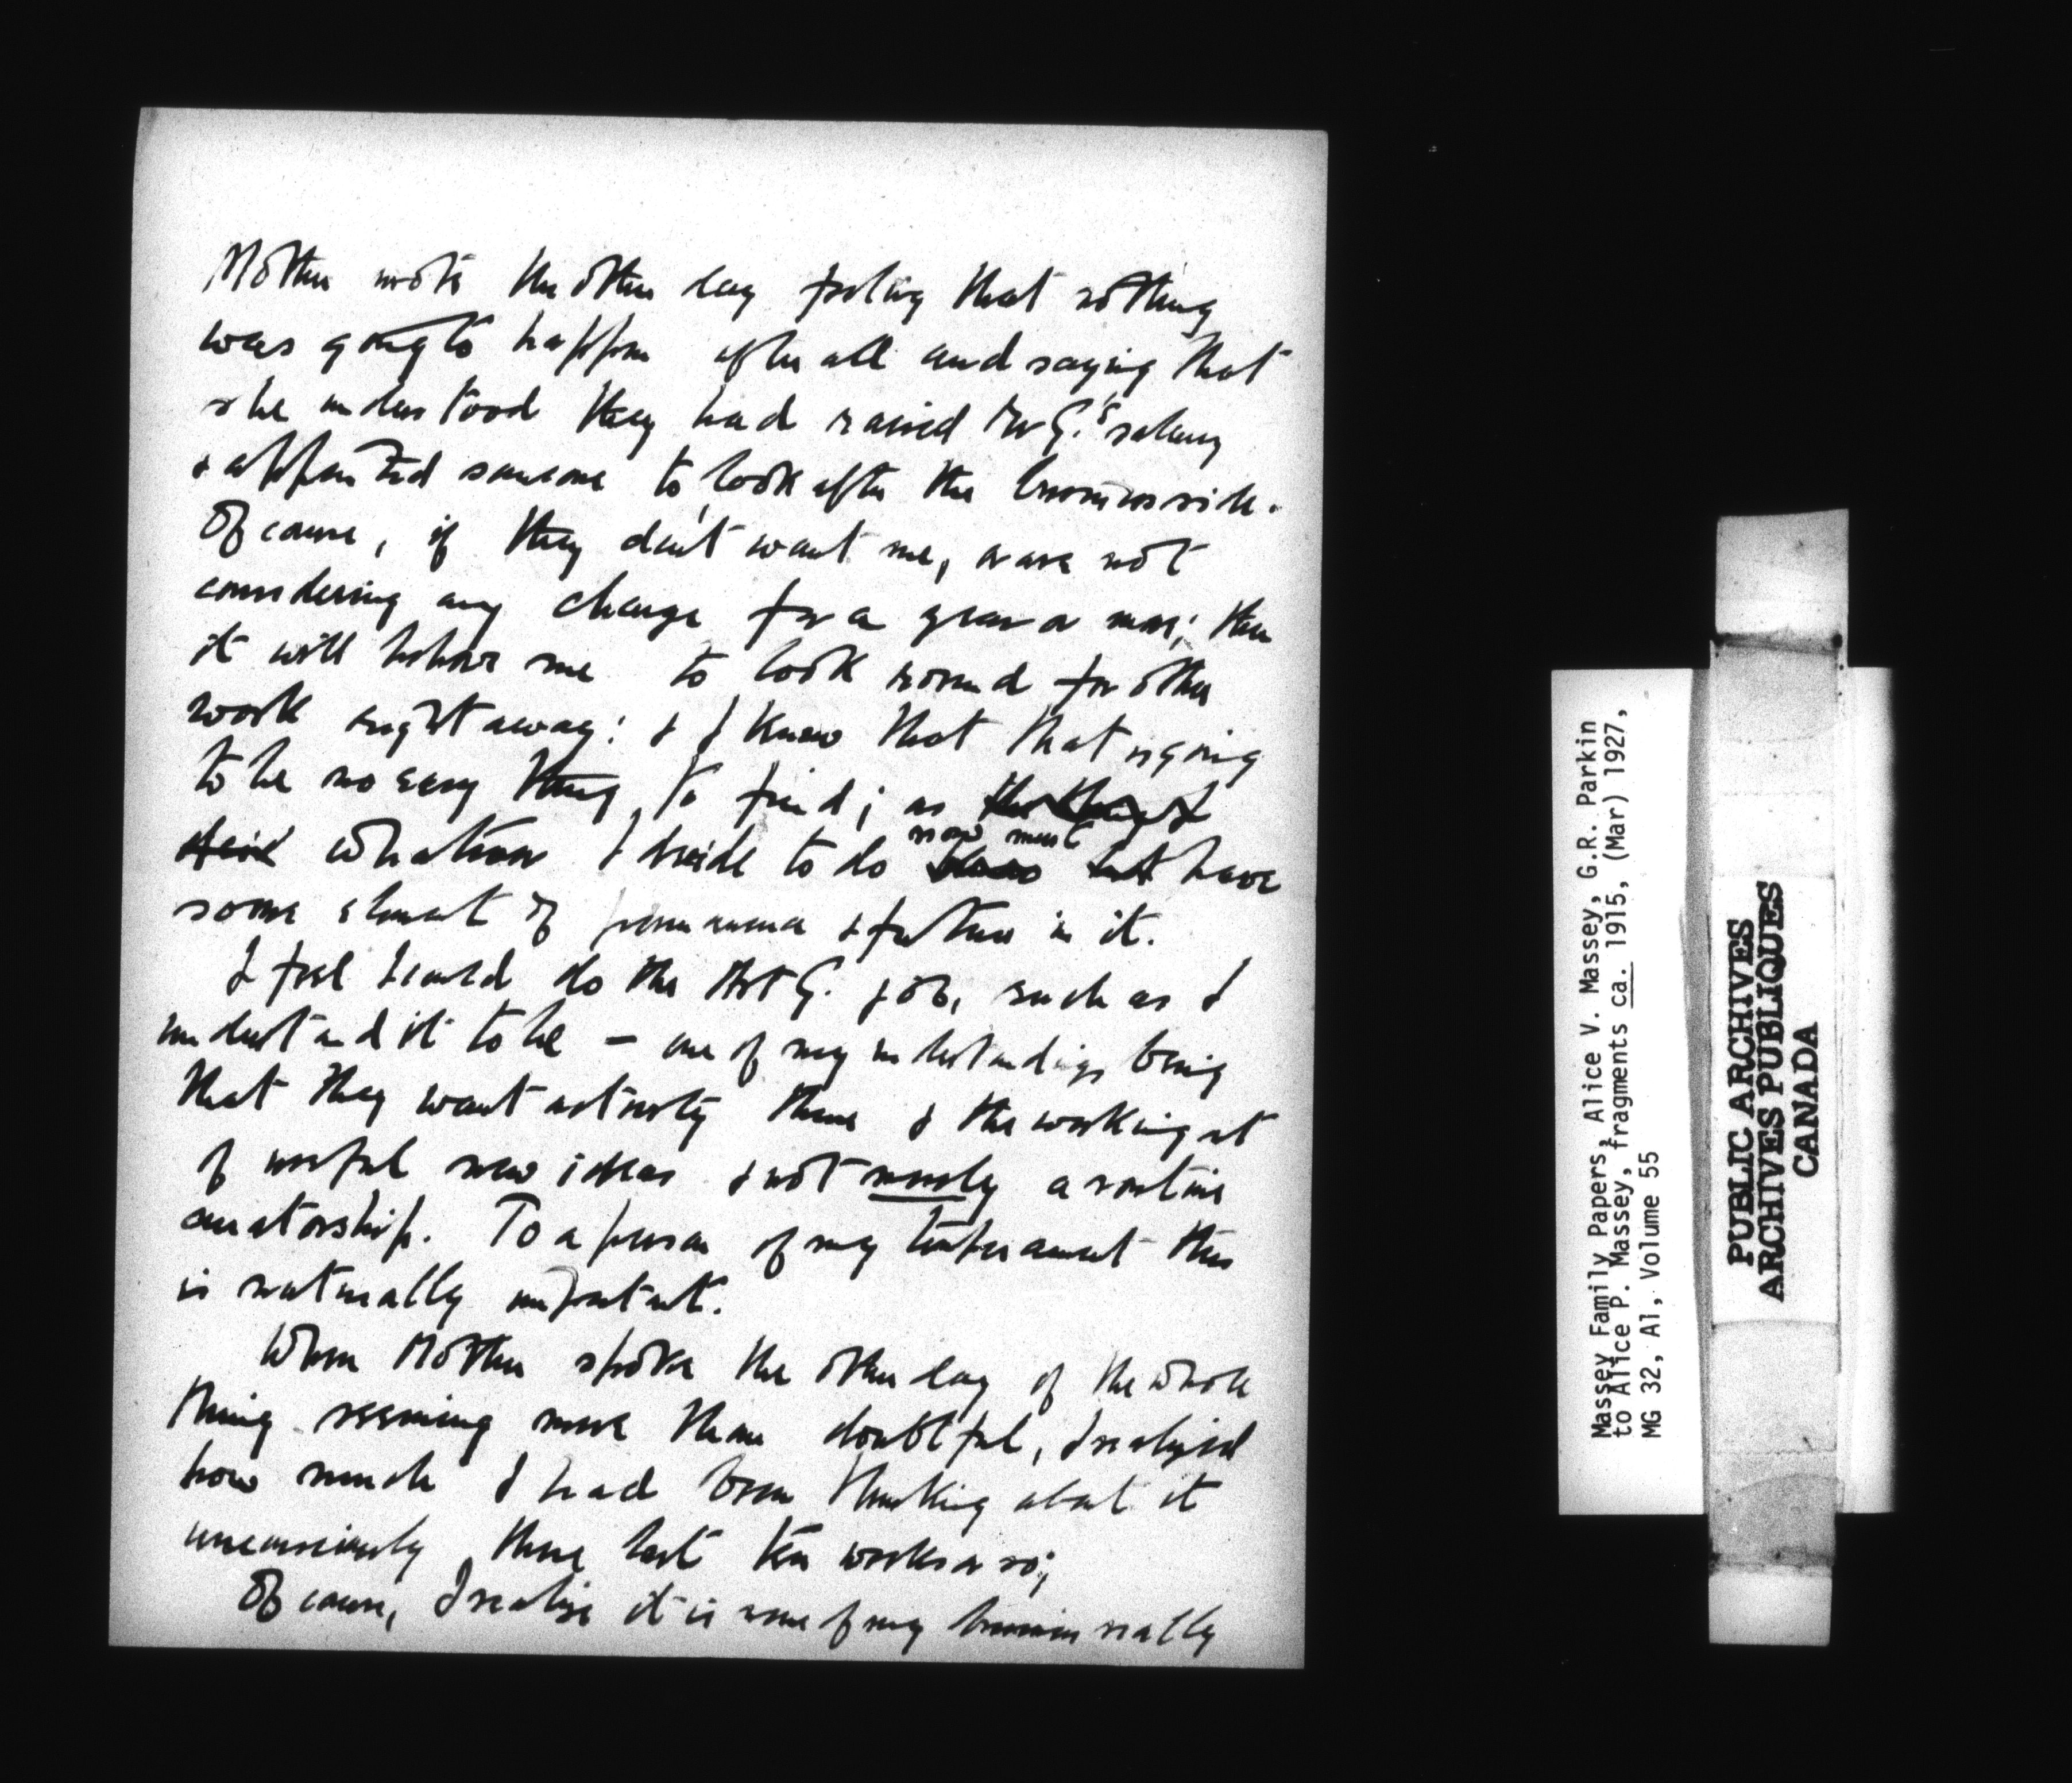 Mother wrote the other day feeling that nothing
was going to happen after all and saying that
she understood they had raised Mr G.'s salary
& appointed someone to look after the business side.
Of course, if they don't want me, or are not
considering any change for a year or more; then
it will behove me to look round for other
work right away: & I know that that is going
to be no easy thing to find; as
whatever I decide to do now must have
some element of permanence & future in it.
I feel I could do the Art G. job, such as I
understand it to be – one of my understandings being
that they want activity there & the working out
of useful new ideas & not merely a routine
curatorship. To a person of my temperament this
is naturally important.
When Mother spoke the other day of the whole
thing seeming more than doubtful, I realized
how much I had been thinking about it
unconsciously these last ten weeks or so;
Of course, I realize it is none of my business really
Massey Family Papers, Alice V. Massey, G.R. Parkin
to Alice P. Massey, fragments ca. 1915, (Mar) 1927,
MG 32, A1, Volume 55
PUBLIC ARCHIVES
ARCHIVES PUBLIQUES
CANADA